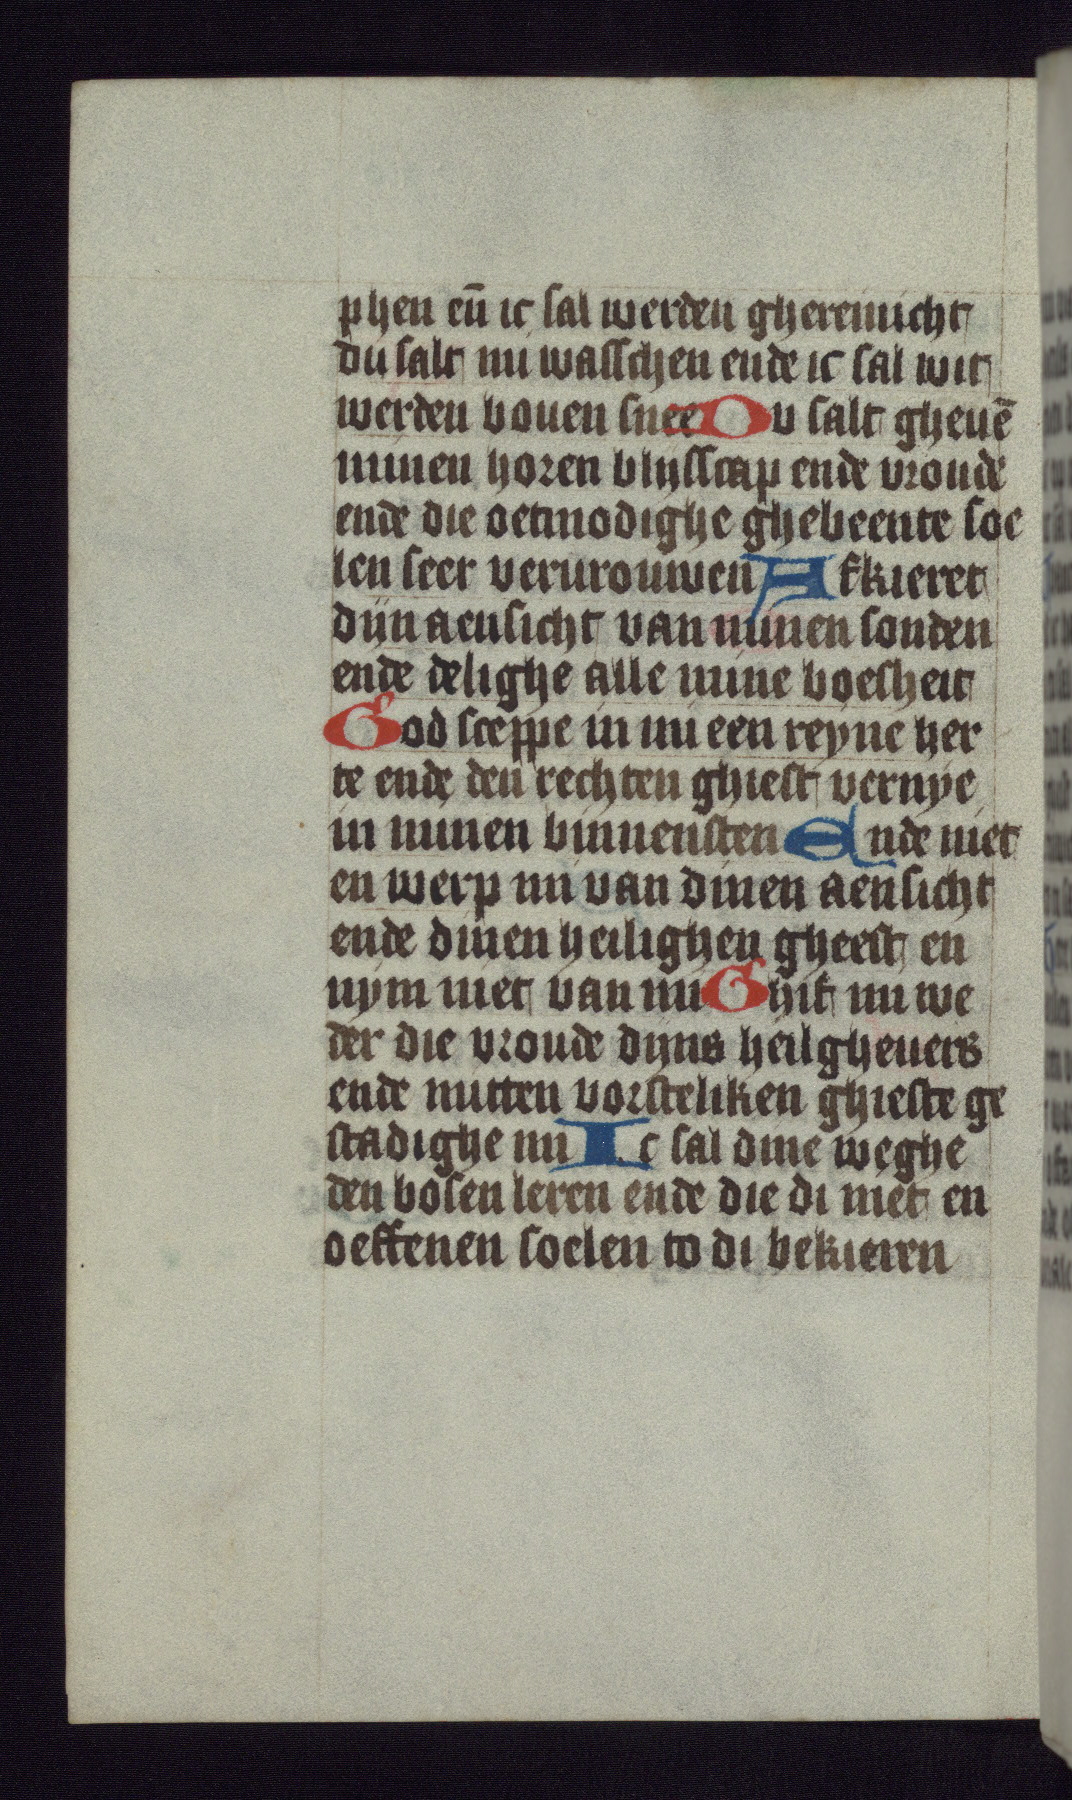 phen eñ ic sal werden ghereinicht
du salt mi wasschen ende ic sal wit
werden bouen snee Du salt gheuē
minen horen blijsscap ende vroude
ende die oetmodighe ghebeente soe
len seer verurouwen Afkieret
dijn aensicht van minen sonden
ende delighe alle mine boesheit
God sceppe in mi een reyne her
te ende den rechten ghiest vernye
in minen binnensten Ende niet
en werp mi van dinen aensicht
ende dinen heilighen gheest en
nym niet van mi Ghif mi we
der die vroude dijns heilgheuers
ende mitten vorsteliken ghieste ge
stadighe mi Ic sal dine weghe
den bosen leren ende die di niet en
oeffenen soelen to di bekieren